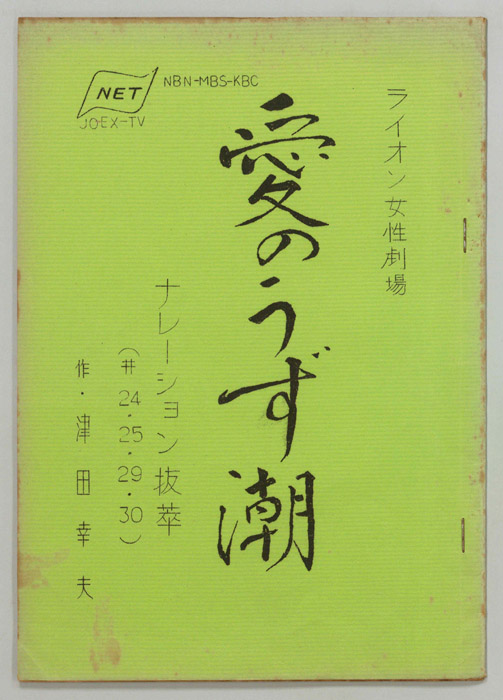 NET
JOEX-TV
NBN-MBS-KBC
ライオン女性劇場
愛のうず潮
ナレーション抜萃
(#24・25・29・30)
作・津田幸夫